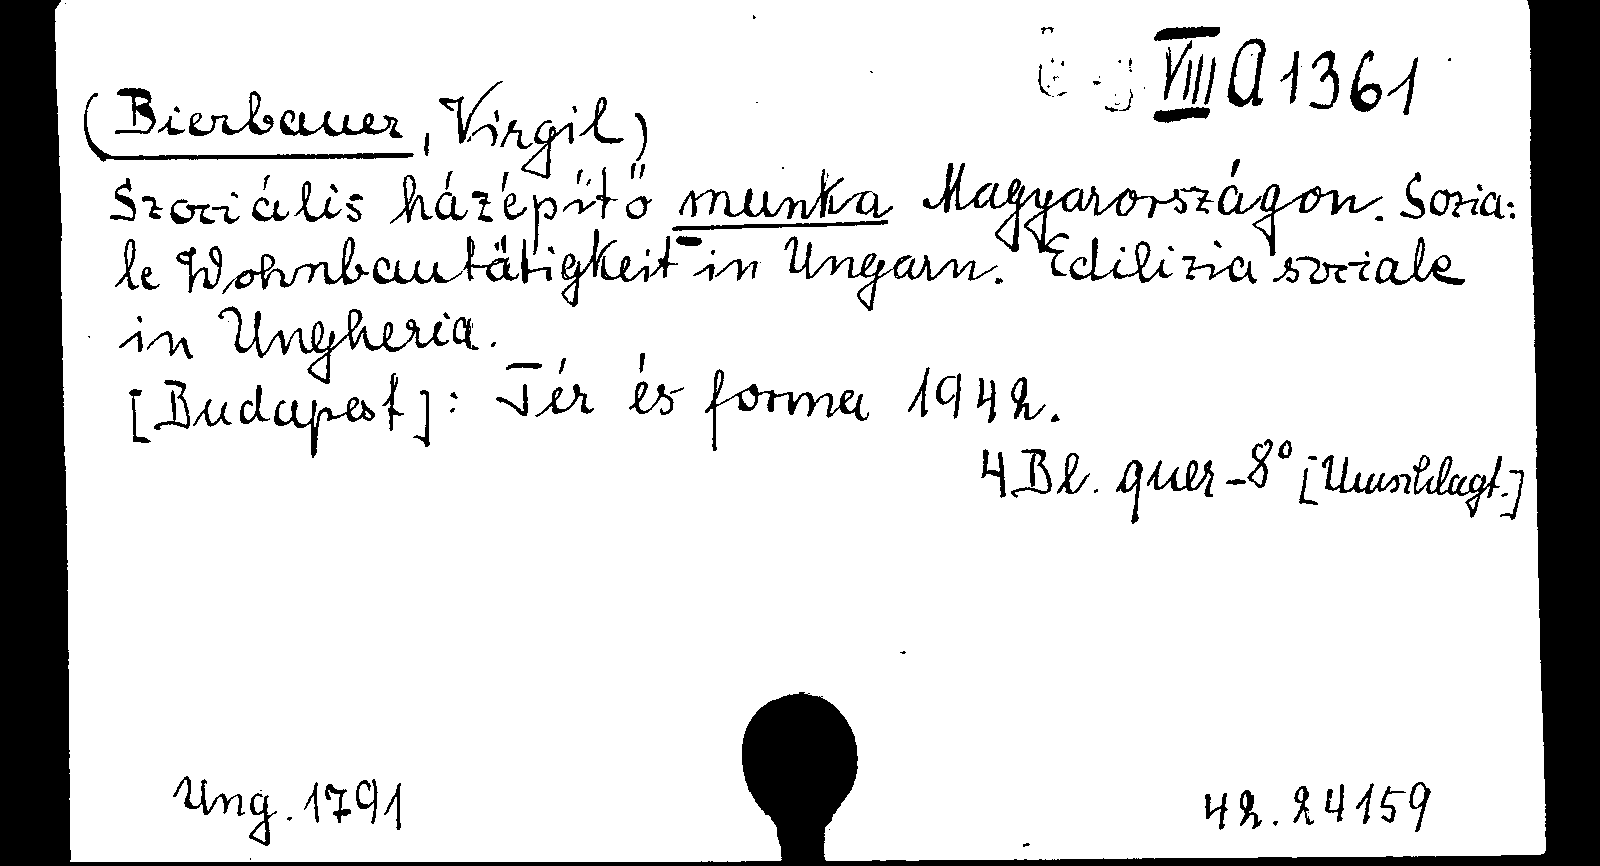 VIII A 1361
(Bierbauer, Virgil)
Szociális házépítő munka Magyarországon. Sozia:
le Wohnbautätigkeit in Ungarn. Edilizia sociale
in Ungheria.
[Budapest]: Tér és forma 1942.
4 Bl. quer-8° [Umschlagt.]
Ung. 1791
42. 24159